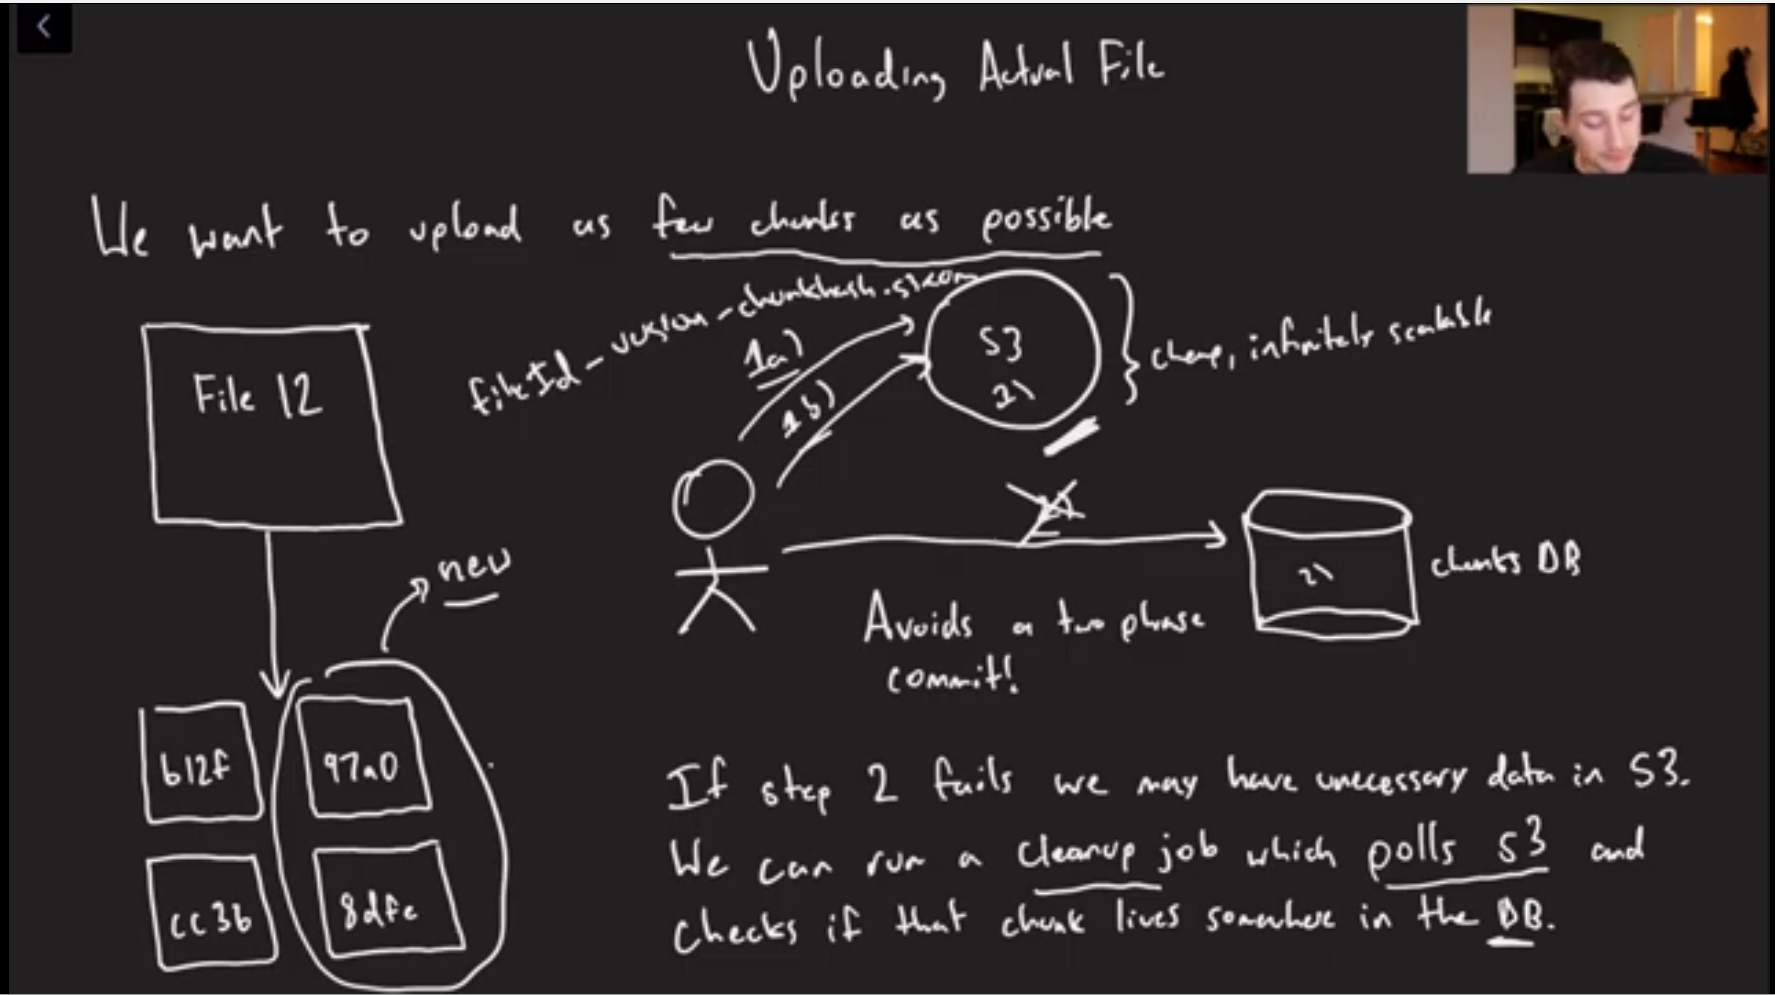 Uploading Actual File
We want to upload as few chunks as possible
fileId - version - chunkhash.s3.com
1a)
1b)
S3
cheap, infinitely scalable
File 12
new
chunks DB
Avoids a two phase
commit!
b12f
97a0
cc3b
8dfe
If step 2 fails we may have unecessary data in S3.
We can run a cleanup job which polls S3 and
checks if that chunk lives somewhere in the DB.